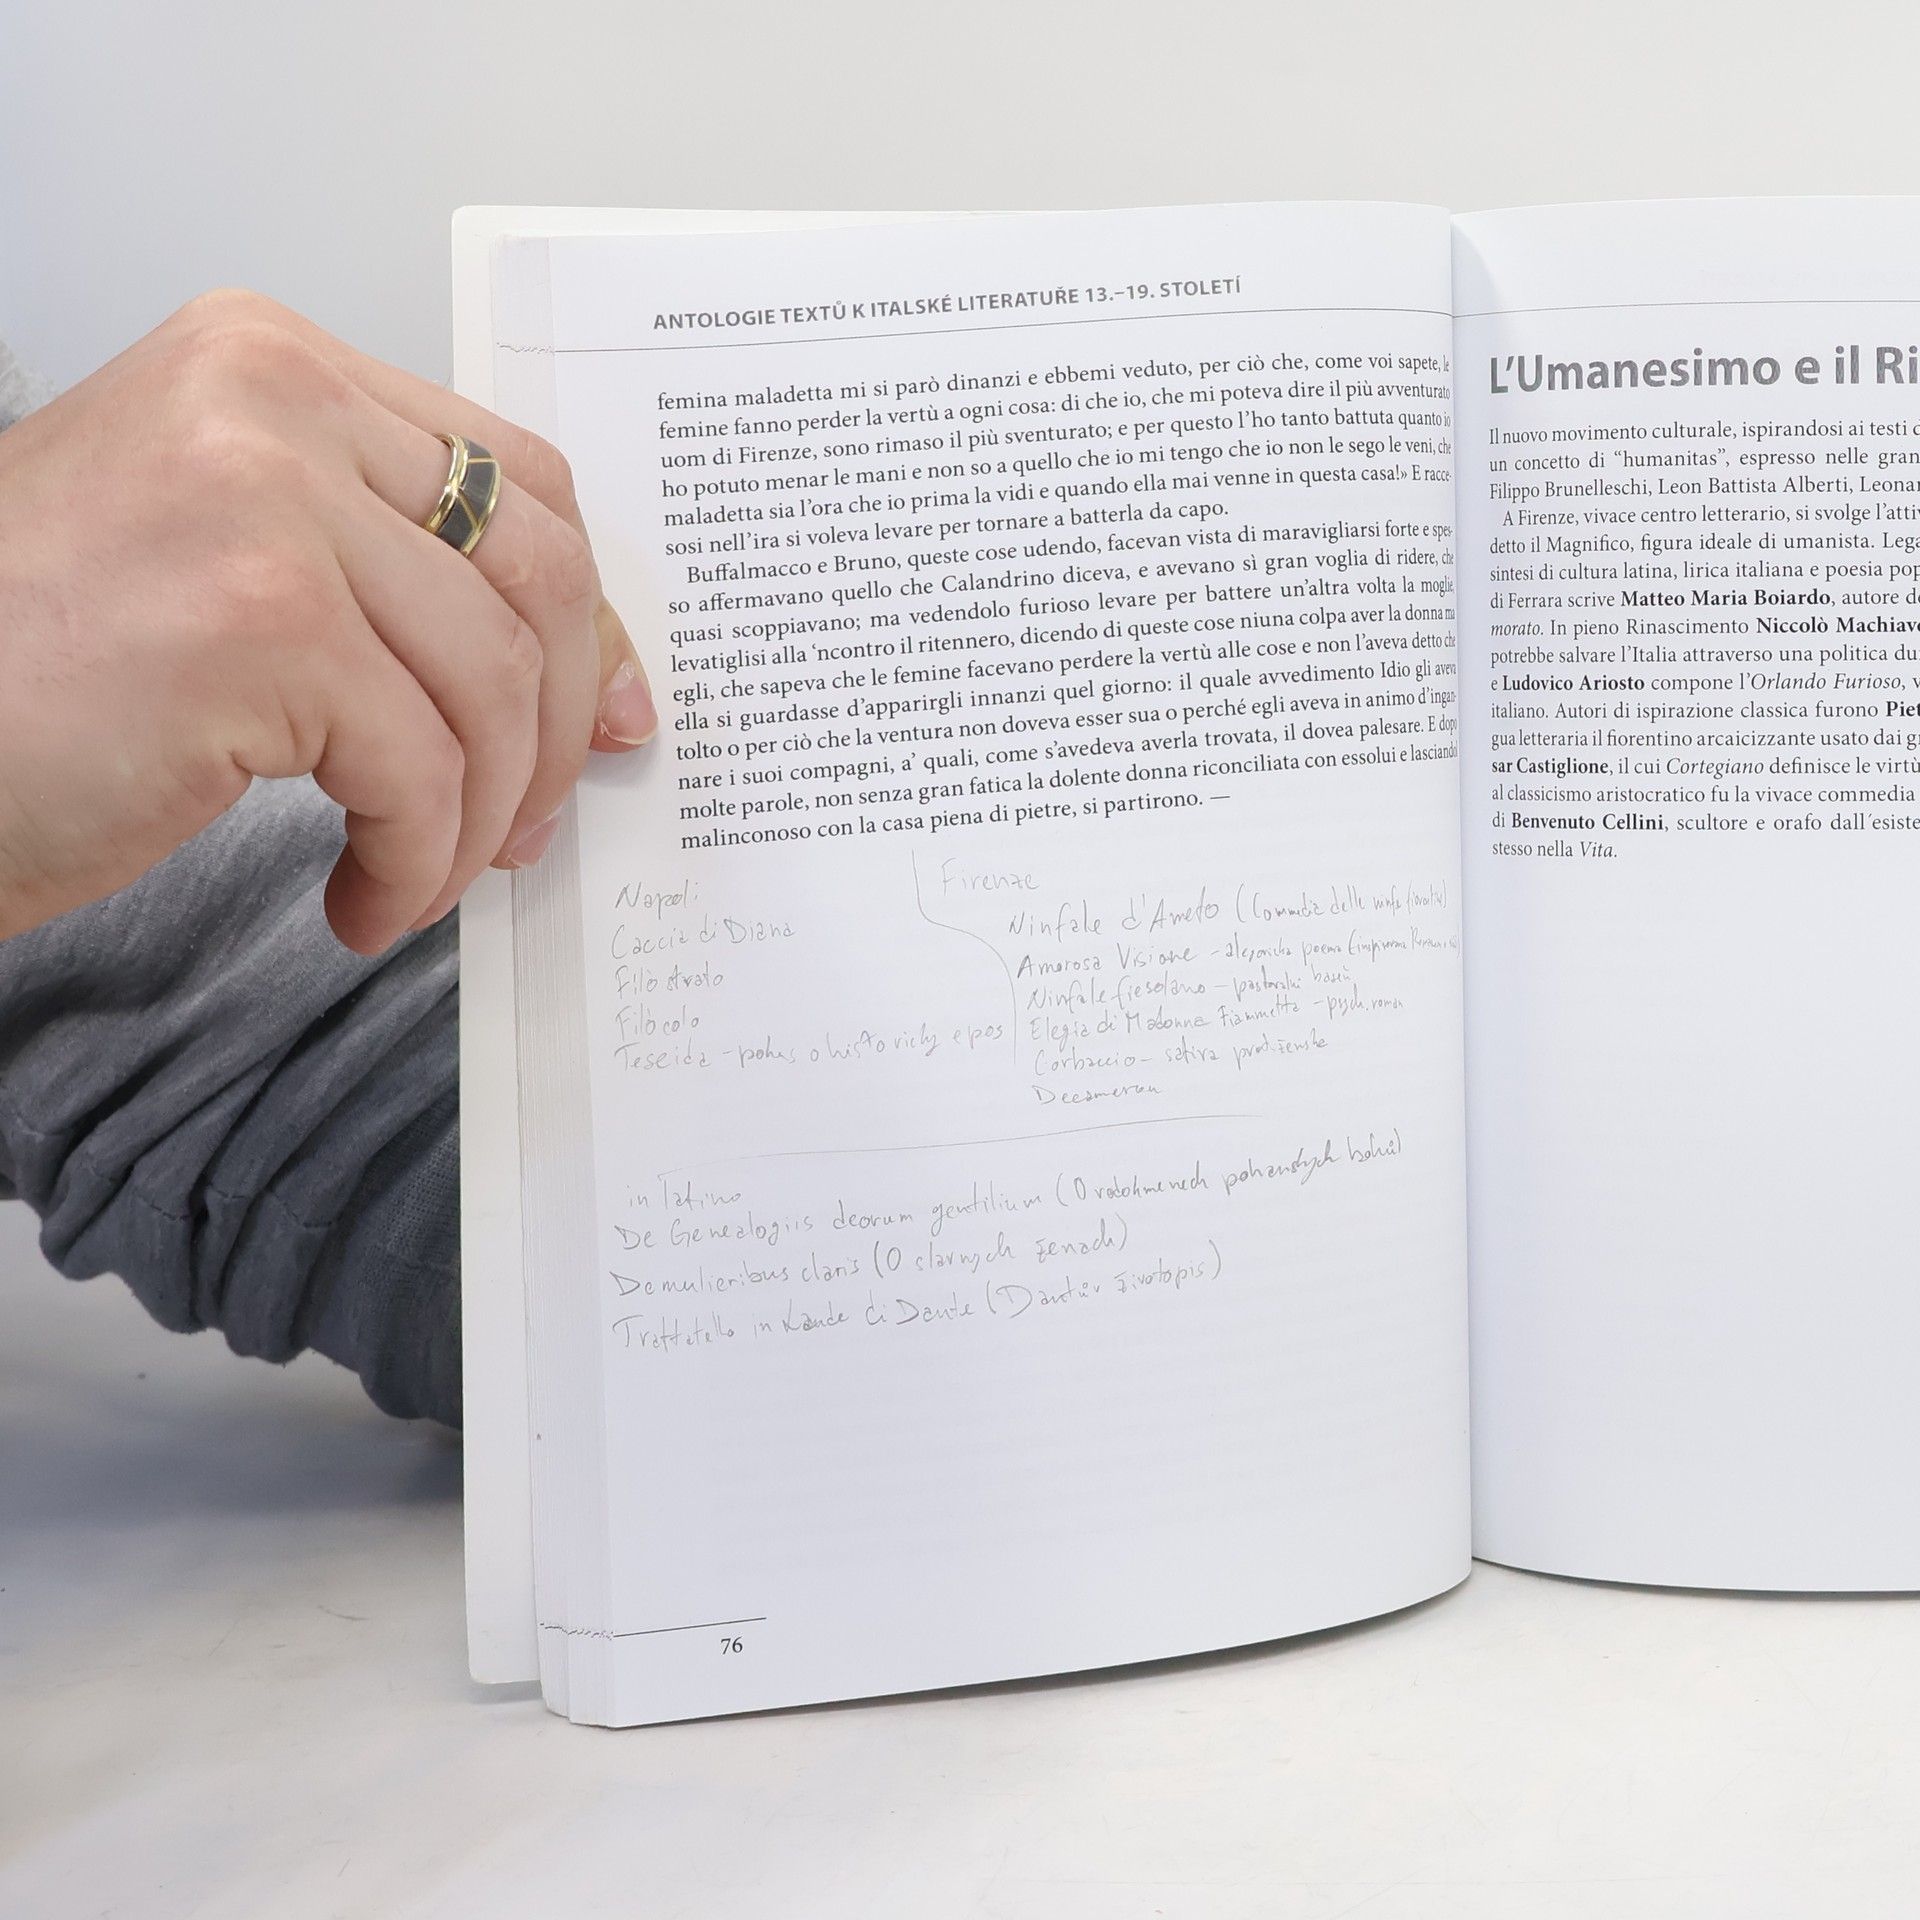 ANTOLOGIE TEXTŮ K ITALSKÉ LITERATUŘE 13.–19. STOLETÍ
femina maladetta mi si parò dinanzi e ebbemi veduto, per ciò che, come voi sapete, le
femine fanno perder la vertù a ogni cosa: di che io, che mi poteva dire il più avventurato
uom di Firenze, sono rimaso il più sventurato; e per questo l'ho tanto battuta quanto io
ho potuto menar le mani e non so a quello che io mi tengo che io non le sego le veni, che
maladetta sia l'ora che io prima la vidi e quando ella mai venne in questa casa!» E racce-
sosi nell'ira si voleva levare per tornare a batterla da capo.
Buffalmacco e Bruno, queste cose udendo, facevan vista di maravigliarsi forte e spes-
so affermavano quello che Calandrino diceva, e avevano sì gran voglia di ridere, che
quasi scoppiavano; ma vedendolo furioso levare per battere un'altra volta la moglie,
levatiglisi alla 'ncontro il ritennero, dicendo di queste cose niuna colpa aver la donna ma
egli, che sapeva che le femine facevano perdere la vertù alle cose e non l'aveva detto che
ella si guardasse d'apparirgli innanzi quel giorno: il quale avvedimento Idio gli aveva
tolto o per ciò che la ventura non doveva esser sua o perché egli aveva in animo d'ingan-
nare i suoi compagni, a' quali, come s'avedeva averla trovata, il dovea palesare. E dopo
molte parole, non senza gran fatica la dolente donna riconciliata con essolui e lasciando
malinconoso con la casa piena di pietre, si partirono. —
Napoli:
Caccia di Diana
Filòstrato
Filòcolo
Teseida - pokus o historický epos
Firenze
Ninfale d'Ameto (Commedia delle ninfe fiorentine)
Amorosa Visione - alegorická poema
Ninfale fiesolano - pastorální báseň
Elegia di Madonna Fiammetta - psych. roman
Corbaccio - satira protiženská
Decameron
in latino
De Genealogiis deorum gentilium (O rodokmenech pohanských bohů)
De mulieribus claris (O slavných ženach)
Trattatello in Laude di Dante (Dantův životopis)
76
L'Umanesimo e il Ri
Il nuovo movimento culturale, ispirandosi ai testi
un concetto di "humanitas", espresso nelle gran
Filippo Brunelleschi, Leon Battista Alberti, Leonar
A Firenze, vivace centro letterario, si svolge l'atti
detto il Magnifico, figura ideale di umanista. Lega
sintesi di cultura latina, lirica italiana e poesia pop
di Ferrara scrive Matteo Maria Boiardo, autore de
morato. In pieno Rinascimento Niccolò Machiave
potrebbe salvare l'Italia attraverso una politica du
e Ludovico Ariosto compone l'Orlando Furioso, v
italiano. Autori di ispirazione classica furono Piet
gua letteraria il fiorentino arcaicizzante usato dai g
sar Castiglione, il cui Cortegiano definisce le virtù
al classicismo aristocratico fu la vivace commedia
di Benvenuto Cellini, scultore e orafo dall´esiste
stesso nella Vita.